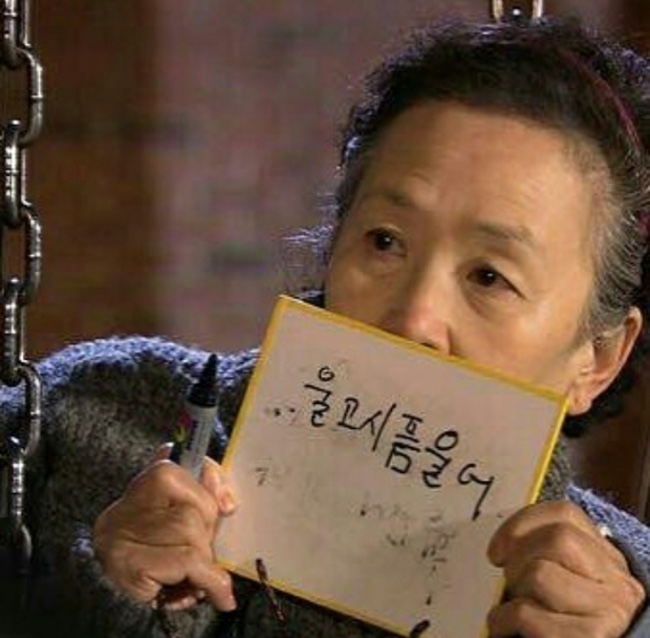 울고시픔을어